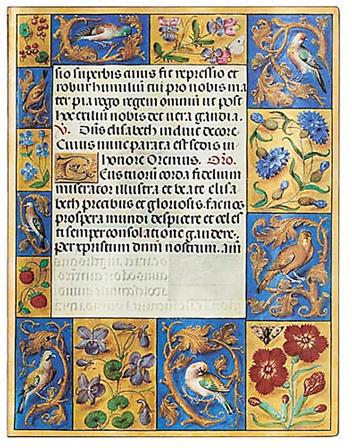 sio superbis cuius fit repressio et
robur humilium qui pro nobis ma
ter pia rogo regem omnium ut post
hoc exilium nobis det vera gaudia.
V. Dns elisabeth induit decore.
Cuius nunc parata est sedis in
honore Oremus. Oro.
Tuorum corda fidelium
miserator illustra et beate elisa
beth precibus et gloriosis. fac nos
prospera mundi despicere et celes
ti semper consolatione gaudere.
Per xpristum dnm nostrum. am